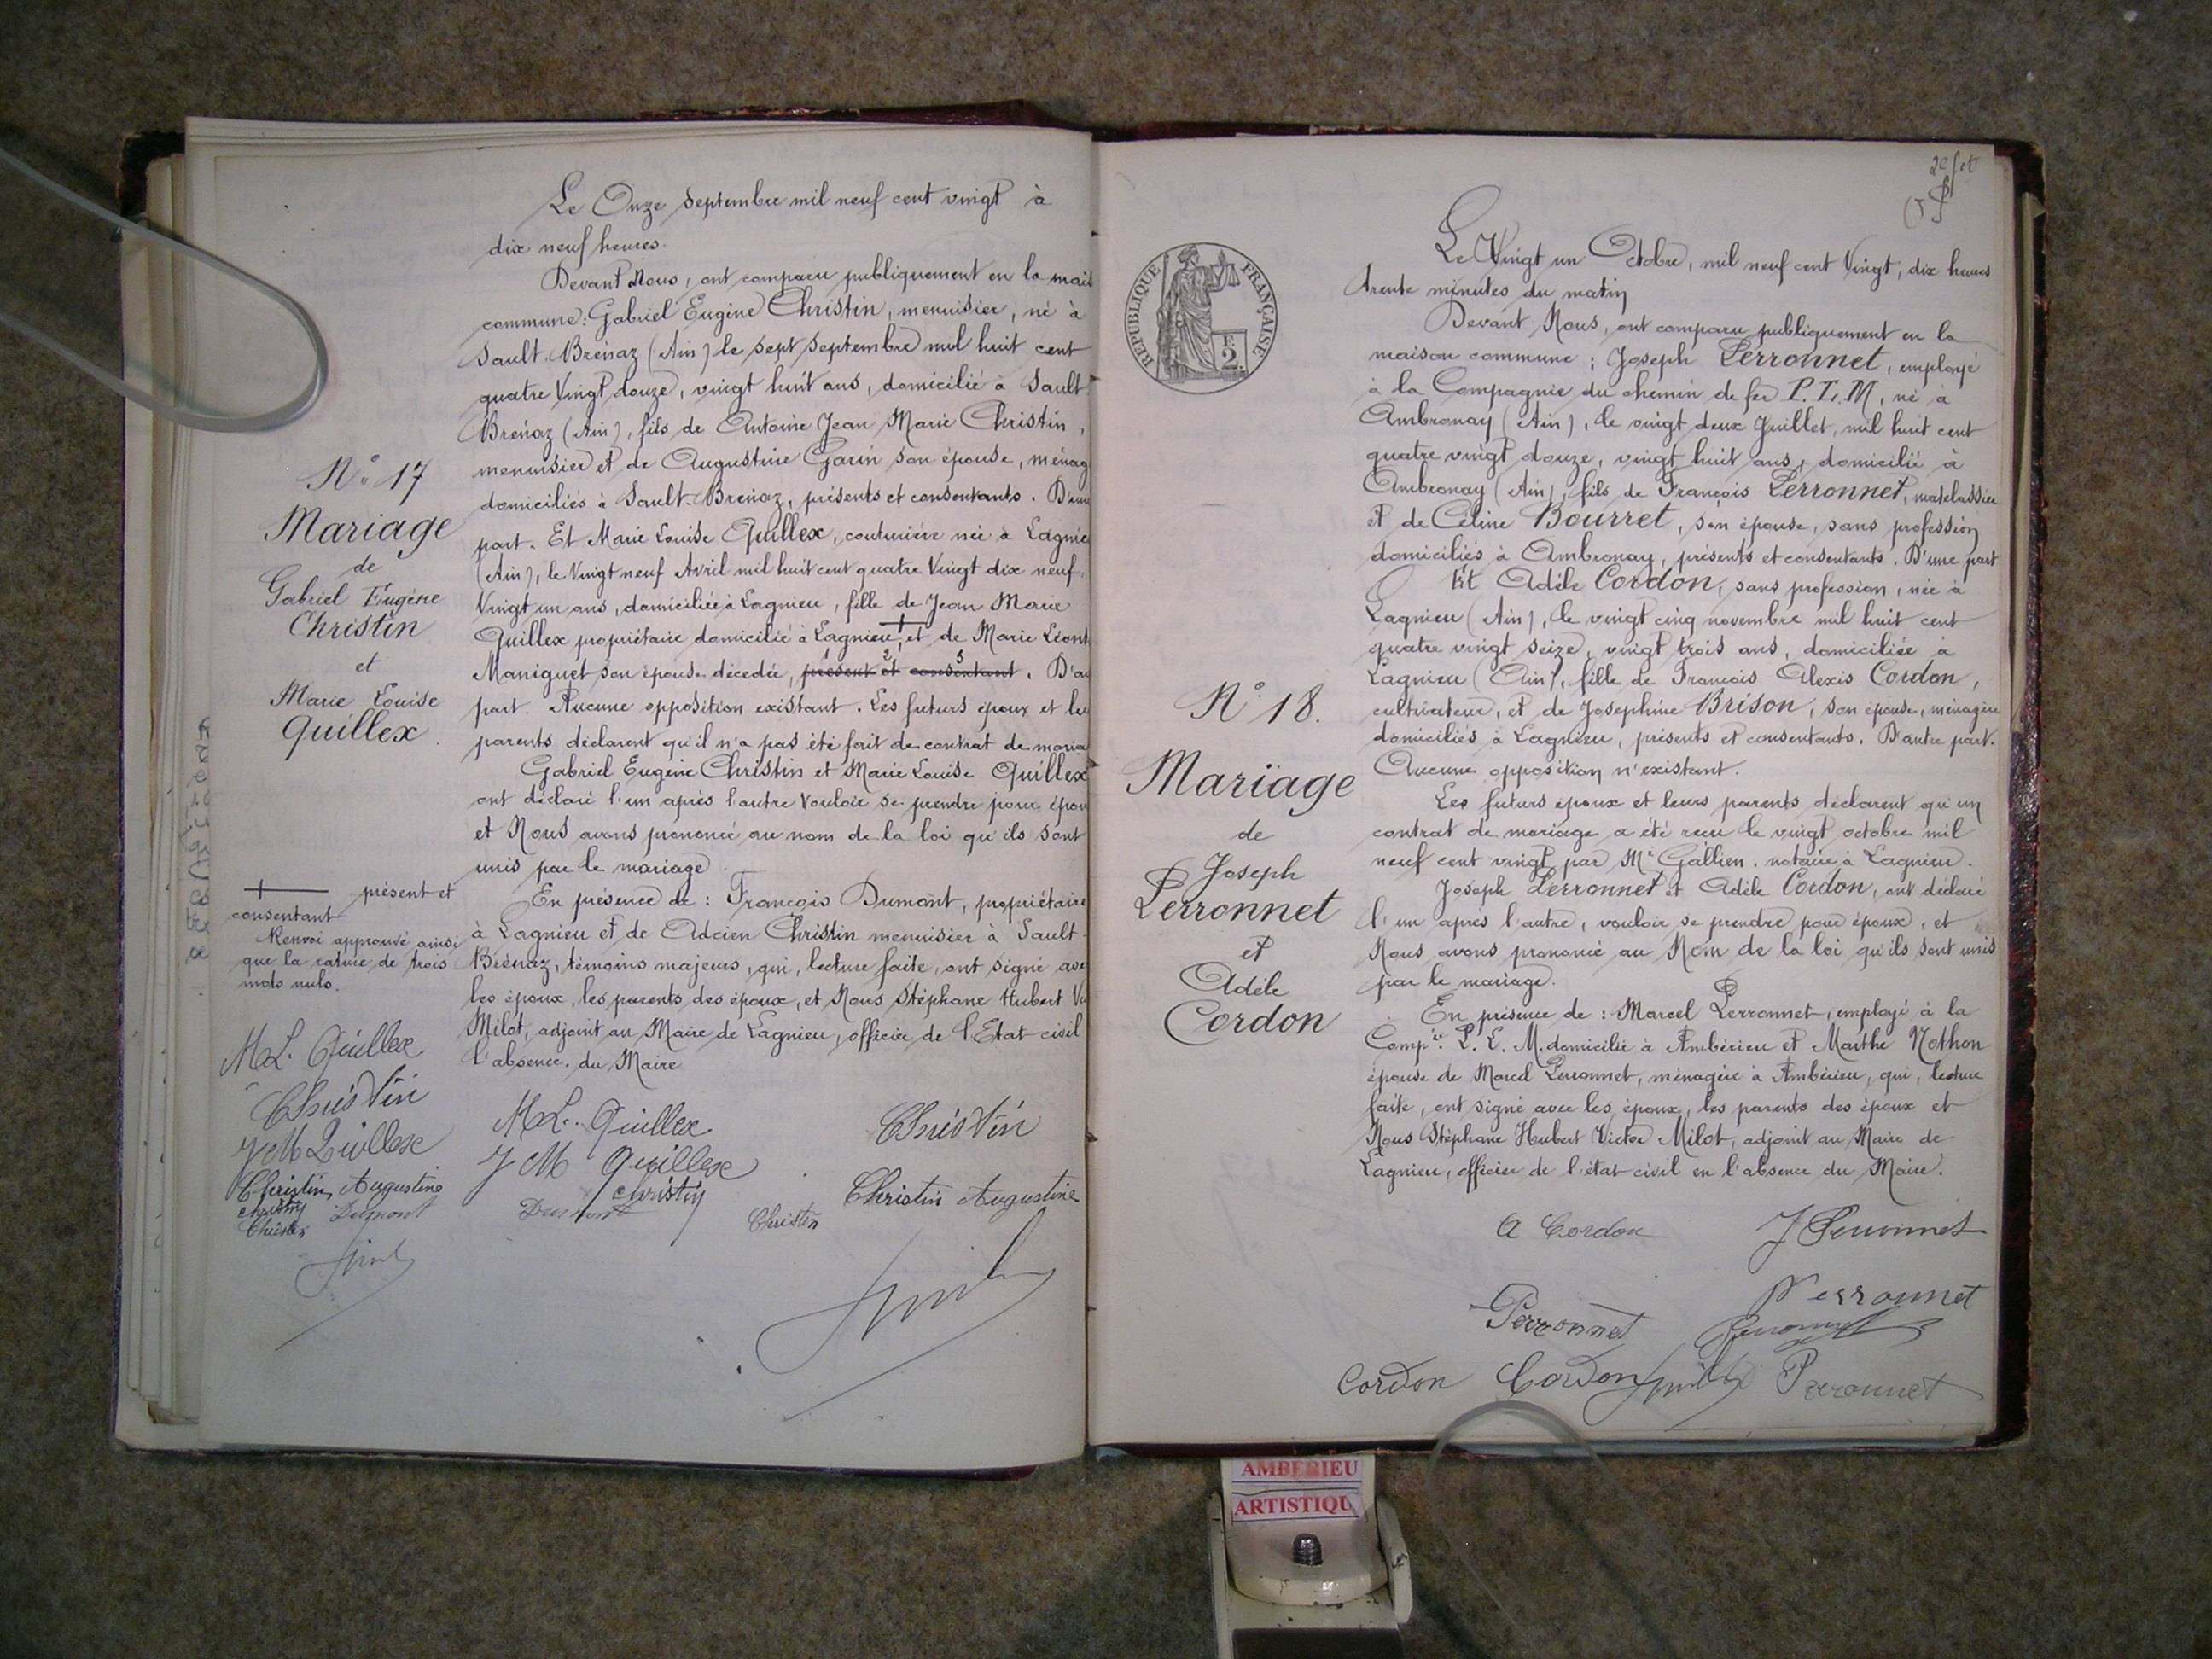 Le Onze septembre mil neuf cent vingt à
dix neuf heures.
Devant Nous, ont comparu publiquement en la mais
commune: Gabriel Eugène Christin, menuisier, né à
Sault-Brénaz (Ain) le sept septembre mil huit cent
quatre Vingt douze, vingt huit ans, domicilié à Sault-
Brénaz (Ain), fils de Antoine Jean Marie Christin,
menuisier et de Augustine Garin son épouse, ménag
domiciliés à Sault-Brénaz, présents et consentants. D'une
part. Et Marie Louise Quillex, couturière née à Lagnie
(Ain), le Vingt neuf Avril mil huit cent quatre Vingt dix neuf,
Vingt un ans, domiciliée à Lagnieu, fille de Jean Marie
Quillex propriétaire domicilié à Lagnieu, et de Marie Léont
Maniguet son épouse décédée, présent et consentant. D'au
part. Aucune opposition existant. Les futurs époux et leu
parents déclarent qu'il n'a pas été fait de contrat de maria
Gabriel Eugène Christin et Marie Louise Quillex
ont déclaré l'un après l'autre vouloir se prendre pour épou
et Nous avons prononcé au nom de la loi qu'ils sont
unis par le mariage
En présence de: François Dumont, propriétaire
à Lagnieu et de Adrien Christin menuisier à Sault-
Brénaz, témoins majeurs, qui, lecture faite, ont signé ave
les époux, les parents des époux, et Nous Stéphane Hubert Vi
Milot, adjoint au Maire de Lagnieu, officier de l'Etat civil
l'absence du Maire
N° 17
Mariage
de
Gabriel Eugène
Christin
et
Marie Louise
Quillex
présent et
consentant
Renvoi approuvé ainsi
que la rature de trois
mots nuls.
M.L. Quillex
Christin
J M Quillex
Christin Augustine
Christin Dumont
Christin
M.L. Quillex
Christin
J M Quillex
Christin
Christin Augustine
Dumont
Christin
RÉPUBLIQUE FRANÇAISE
F.
2.
Le Vingt un Octobre, mil neuf cent Vingt, dix heures
trente minutes du matin
Devant Nous, ont comparu publiquement en la
maison commune: Joseph Perronnet, employé
à la Compagnie du chemin de fer P.L.M, né à
Ambronay (Ain), le vingt deux Juillet, mil huit cent
quatre vingt douze, vingt huit ans, domicilié à
Ambronay (Ain), fils de François Perronnet, matelassier
et de Céline Bourret, son épouse, sans profession
domiciliés à Ambronay, présents et consentants. D'une part
Et Adèle Cordon, sans profession, née à
Lagnieu (Ain), le vingt cinq novembre mil huit cent
quatre vingt seize, vingt trois ans, domiciliée à
Lagnieu (Ain), fille de François Alexis Cordon,
cultivateur, et de Josephine Brison, son épouse, ménagère
domiciliés à Lagnieu, présents et consentants. D'autre part.
Aucune opposition n'existant.
Les futurs époux et leurs parents déclarent qu'un
contrat de mariage a été reçu le vingt octobre mil
neuf cent vingt par Me Gallien, notaire à Lagnieu.
Joseph Perronnet et Adèle Cordon, ont déclaré
l'un après l'autre, vouloir se prendre pour époux, et
Nous avons prononcé au Nom de la loi qu'ils sont unis
par le mariage.
En présence de: Marcel Perronnet, employé à la
Compie P.L.M. domicilié à Ambérieu et Marthe Nothon
épouse de Marcel Perronnet, ménagère à Ambérieu, qui, lecture
faite, ont signé avec les époux, les parents des époux et
Nous Stéphane Hubert Victor Milot, adjoint au Maire de
Lagnieu, officier de l'état civil en l'absence du Maire.
N° 18.
Mariage
de
Joseph
Perronnet
et
Adèle
Cordon
A Cordon
J Perronnet
Perronnet
Perronnet
Perronnet
Cordon
Cordon
Perronnet
AMBERIEU
ARTISTIQU